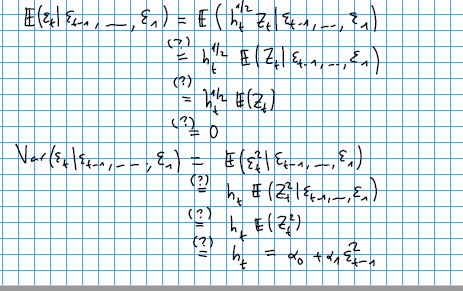 𝔼(ε_t|ε_{t-1}, ..., ε_1) = 𝔼(h_t^{1/2} Z_t|ε_{t-1}, ..., ε_1)
(?) = h_t^{1/2} 𝔼(Z_t|ε_{t-1}, ..., ε_1)
(?) = h_t^{1/2} 𝔼(Z_t)
(?) = 0
Var(ε_t|ε_{t-1}, ..., ε_1) = 𝔼(ε_t^2|ε_{t-1}, ..., ε_1)
(?) = h_t 𝔼(Z_t^2|ε_{t-1}, ..., ε_1)
(?) = h_t 𝔼(Z_t^2)
(?) = h_t = α_0 + α_1 ε_{t-1}^2